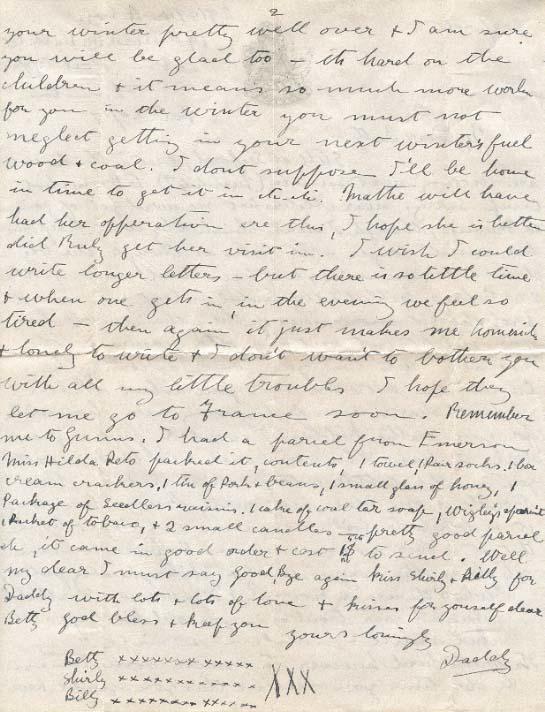 2
your winter pretty well over & I am sure
you will be glad too – its hard on the
children & it means so much more work
for you in the winter you must not
neglect getting in your next winters fuel
wood & coal. I dont suppose I'll be home
in time to get it in Mathe will have
had her opperation ere this, I hope she is better
did Ruby get her visit in. I wish I could
write longer letters – but there is so little time
& when one gets in, in the evening we feel so
tired – then again it just makes me homesick
& lonely to write & I don't want to bother you
with all my little troubles I hope they
let me go to France soon. Remember
me to Gunns. I had a parcel from Emerson
Miss Hilda packed it, contents, 1 towel, 1 Pair socks. 1 box
cream crackers, 1 tin of Pork & beans, 1 small glass of honey, 1
Package of Seedless raisins. 1 cake of coal tar soap, Wigleys
1 Packet of tobaco, & 2 small candles – pretty good parcel
eh, it came in good order & cost to send. Well
my dear I must say Good Bye again kiss Shirly & Billy for
Daddy with lots & lots of love & kisses for youself dear
Betty god bless & keep you
yours lovingly
Daddy
Betty xxxxxxx xxxxx
Shirly xxxxxxxxxxxx XXX
Billy xxxxxxxx xxxx